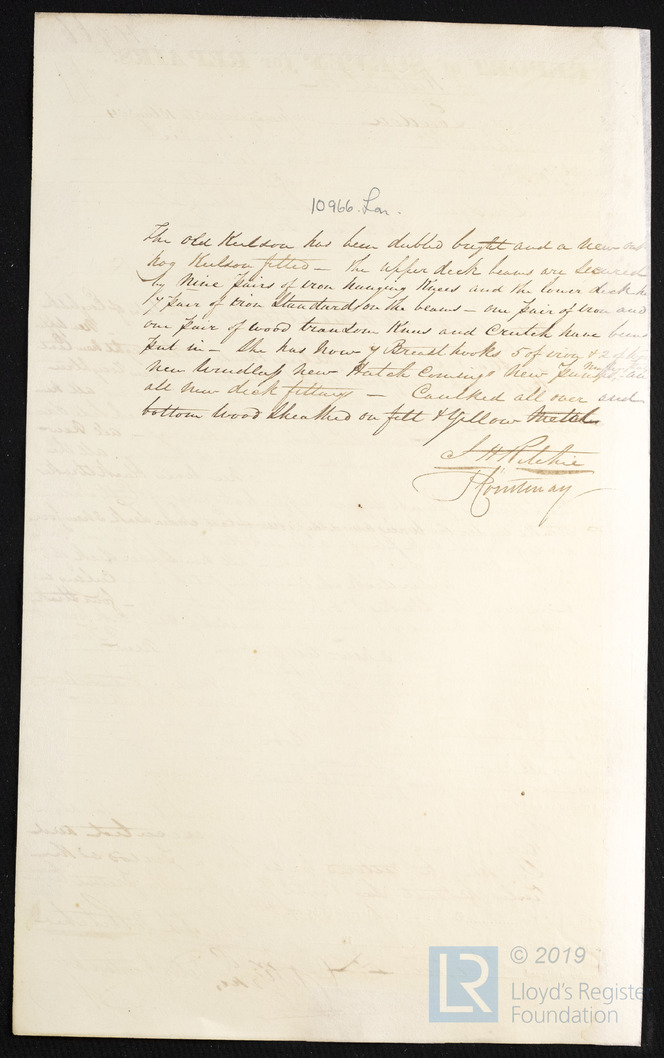 10966 Lon.
The old Keelson has been dubbed bright and a new
hog Keelson fitted – The upper deck beams are secured
by Nine pairs of iron hanging Knees and the lower deck
by 7 pair of iron Standards on the beams – one pair of iron and
one pair of wood transom Knees and Crutch have been
put in – She has now 7 Breast hooks 5 of iron & 2 of
new windlass new Hatch Comings New
all new deck fittings – Caulked all over and
bottom Wood Sheathed on felt & Yellow Metal
J H Ritchie
J Courtenay
© 2019
LR
Lloyd's Register
Foundation